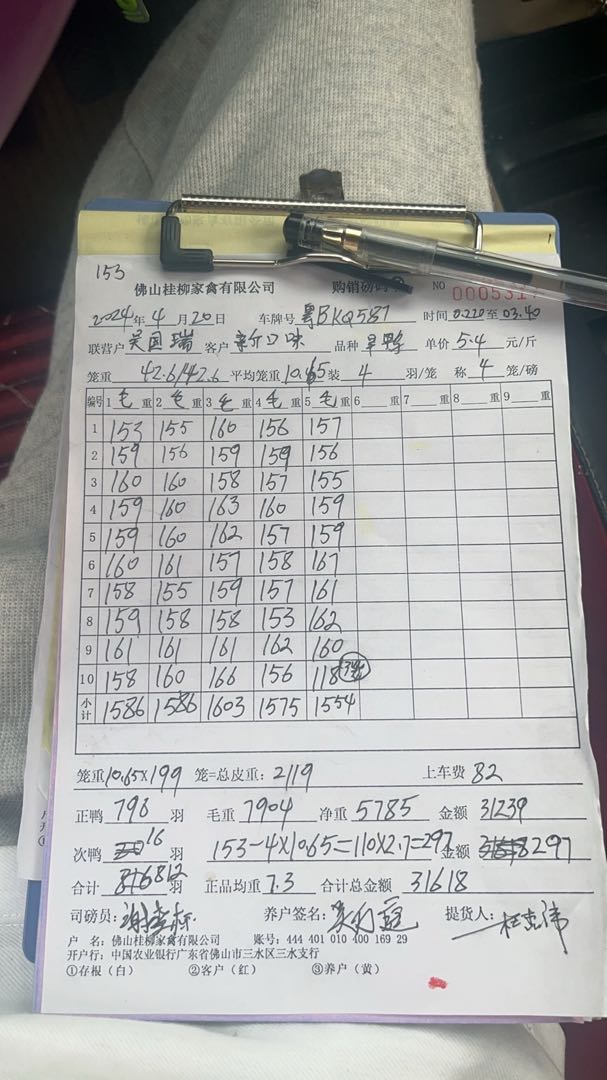 153
佛山桂柳家禽有限公司 购销磅码 NO 000531
2024年4月20日 车牌号 粤BKQ587 时间 0220至03.40
联营户 吴国瑞 客户 新口味 品种 旱鸭 单价 5.4 元/斤
笼重 42.6/42.6 平均笼重 10.65 装 4 羽/笼 称 4 笼/磅
编号 1 毛 重 2 毛 重 3 毛 重 4 毛 重 5 毛 重 6 重 7 重 8 重 9 重
1 153 155 160 156 157
2 159 156 159 159 156
3 160 160 158 157 155
4 159 160 163 160 159
5 159 160 162 157 159
6 160 161 157 158 167
7 158 155 159 157 161
8 159 158 158 153 162
9 161 161 161 162 160
10 158 160 166 156 118
小计 1586 1586 1603 1575 1554
笼重 10.65×199 笼=总皮重: 2119 上车费 82
正鸭 796 羽 毛重 7904 净重 5785 金额 31239
次鸭 16 羽 153-4×10.65=110×2.7=297 金额 297
合计 812 羽 正品均重 7.3 合计总金额 31618
司磅员: 养户签名: 提货人:
户 名: 佛山桂柳家禽有限公司 账号: 444 401 010 400 169 29
开户行: 中国农业银行广东省佛山市三水区三水支行
①存根(白) ②客户(红) ③养户(黄)